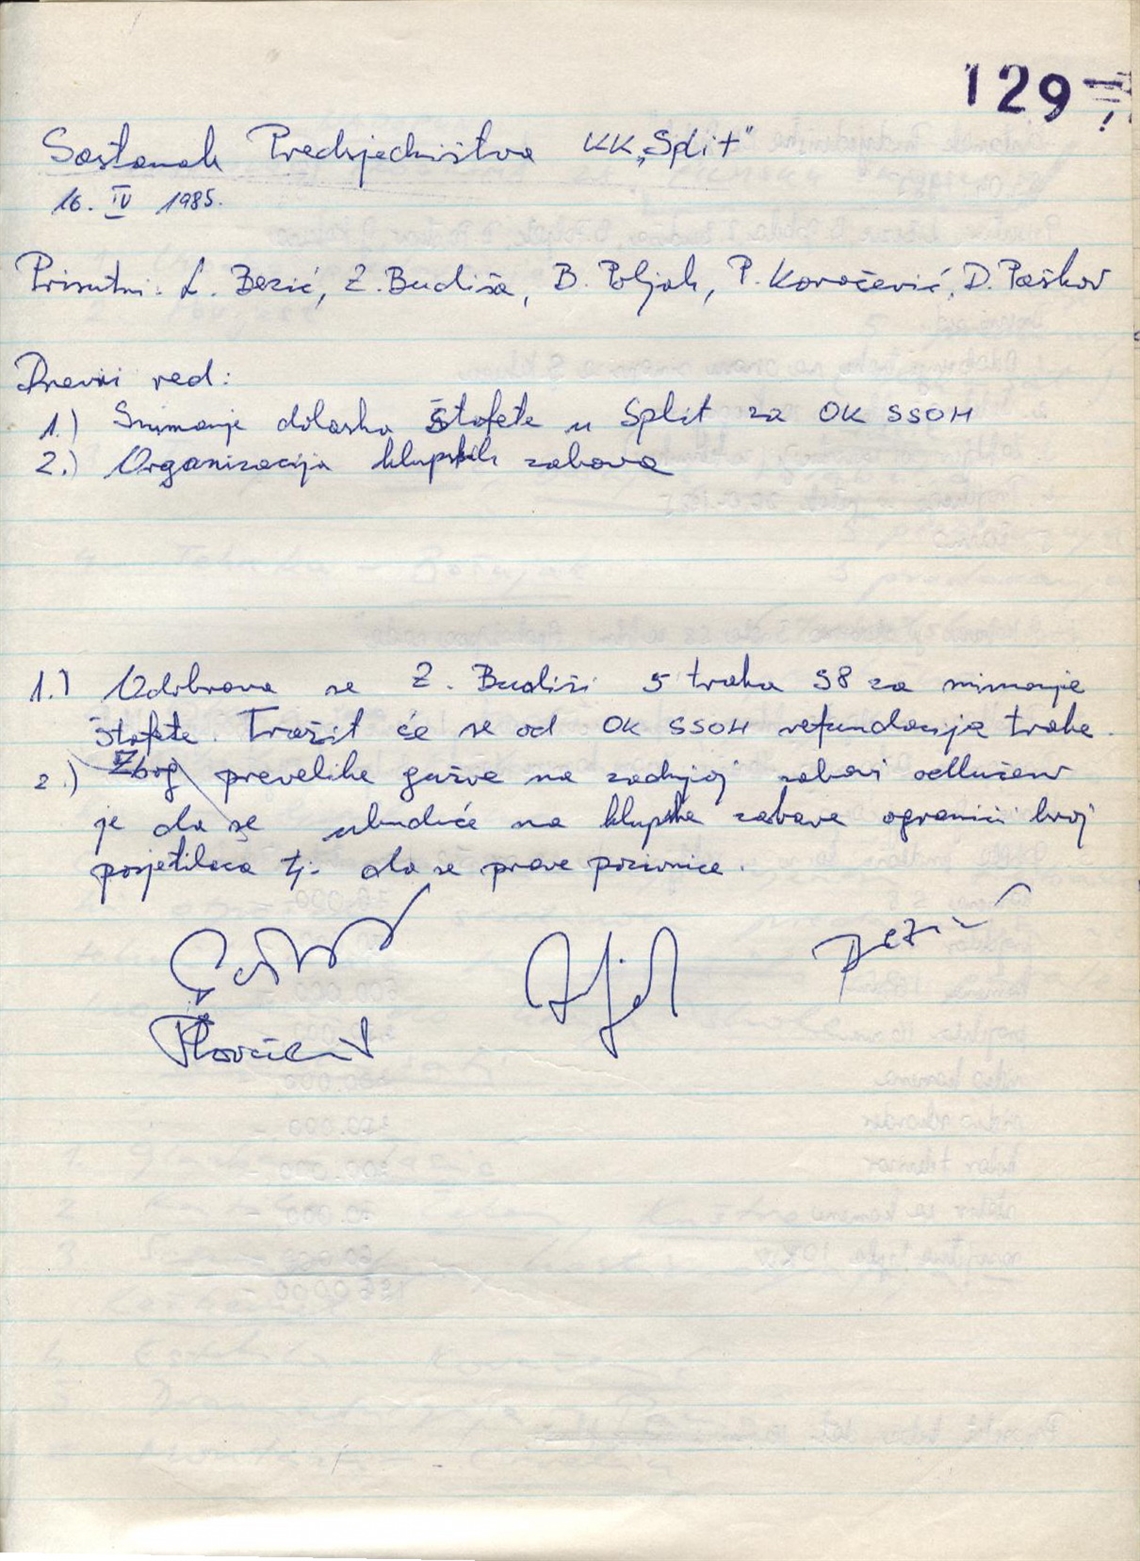 129
Sastanak Predsjedništva KK „Split"
16. IV 1985.
Prisutni: L. Bezić, Z. Budiša, B. Poljak, P. Kovačević, D. Paškov
Dnevni red:
1.) Snimanje dolaska Štafete u Split za OK SSOH
2.) Organizacija klupskih zabava
1.) Odobrava se Z. Budiši 5 traka S8 za snimanje
štafete. Tražit će se od OK SSOH refundacija trake.
2.) Zbog prevelike gužve na zadnjoj zabavi odlučeno
je da se ubuduće na klupske zabave ograniči broj
posjetilaca tj. da se prave pozivnice.
Bezić